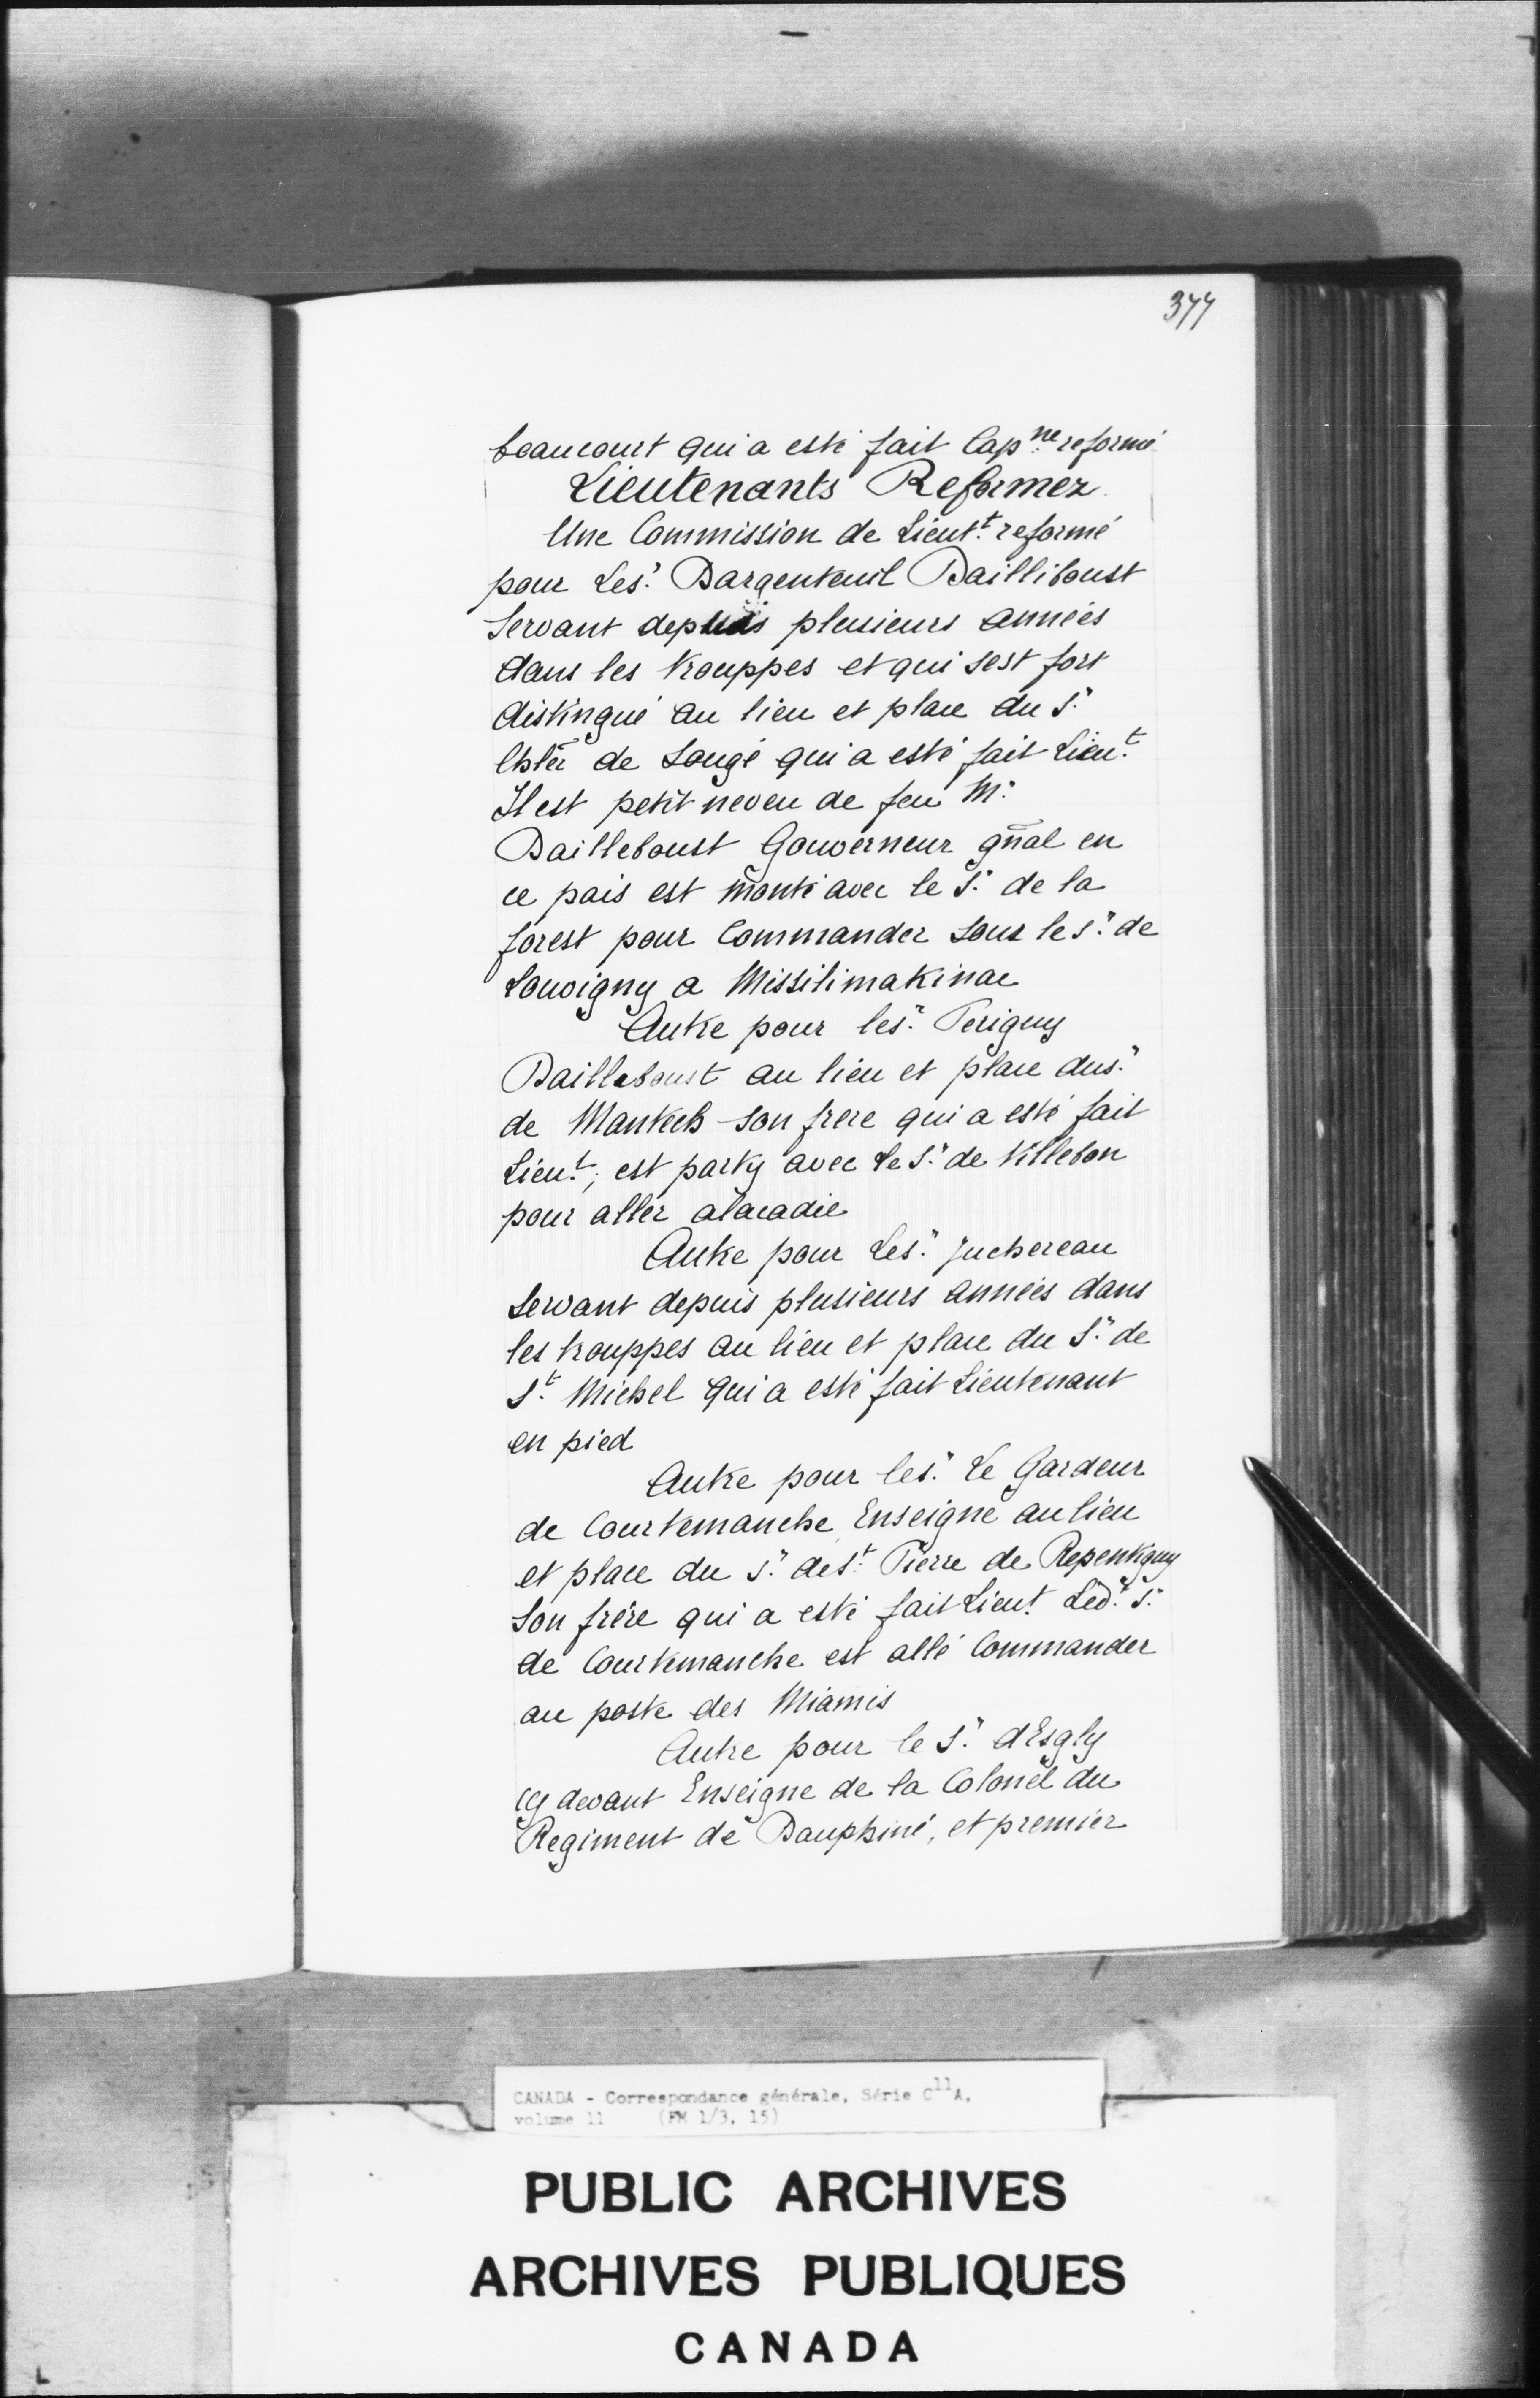 377
beaucourt qui a esté fait Cap.ne reformé
Lieutenants Reformez
Une Commission de Lieut.t reformé
pour Les.r Dargenteuil Dailliboust
Servant depuis plusieurs années
dans les trouppes et qui sest fort
distingué au lieu et place du S.r
Chlēr de Longé qui a esté fait Lieu.t
Il est petit neveu de feu M.r
Dailleboust Gouverneur gñal en
ce pais est monté avec le S.r de la
forest pour Commander sous le s.r de
Louvigny a Missilimakinac
Autre pour les.r Perigny
Dailleboust au lieu et place dus.r
de Manteth son frere qui a esté fait
Lieu.t; est party avec le S.r de Villebon
pour aller alacadie
Autre pour Les.r Juchereau
servant depuis plusieurs années dans
les trouppes au lieu et place du S.r de
S.t Michel qui a esté fait Lieutenant
en pied
Autre pour les.r Le Gardeur
de Courtemanche Enseigne au lieu
et place du s.r de S.t Pierre de Repentigny
son frère qui a esté fait Lieu.t Led.t s.r
de Courtemanche est allé Commander
au poste des Miamis
Autre pour le S.r dEsgly
cy devant Enseigne de la Colonel du
Regiment de Dauphiné, et premier
CANADA - Correspondance générale, Série C11A,
volume 11 (FM 1/3, 15)
PUBLIC ARCHIVES
ARCHIVES PUBLIQUES
CANADA